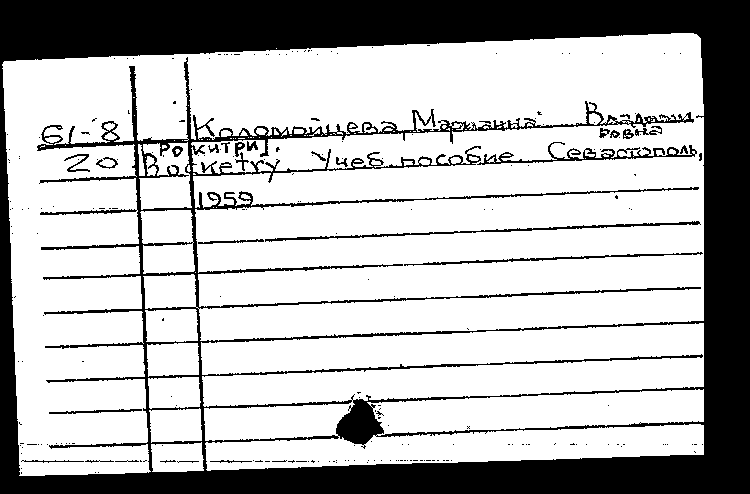 61-8 Коломойцева, Марианна Владими-
ровна
[Рокитри].
20 Rocketry. Учеб. пособие. Севастополь,
1959